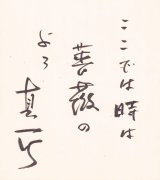 ここでは時は
薔薇の
よう
真一